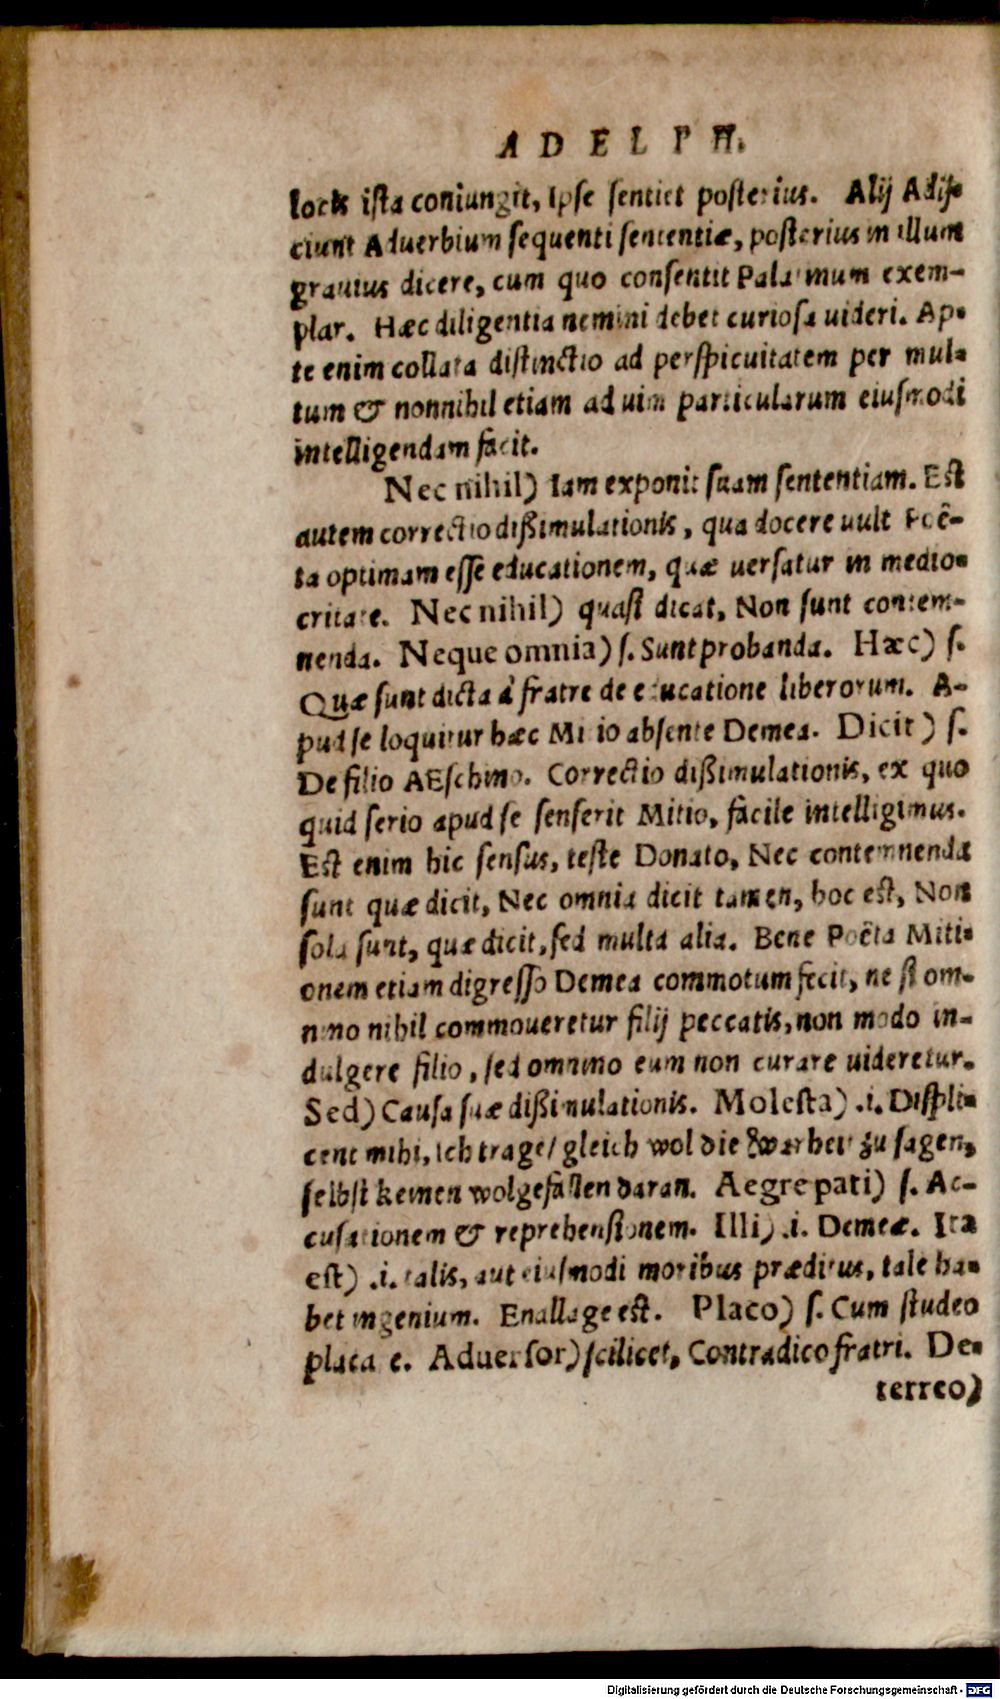 ADELPH.
locis ista coniungit, Ipse sentiet posterius. Alij Adij-
ciunt Aduerbium sequenti sententiæ, posterius in illum
grauius dicere, cum quo consentit Palatinum exem-
plar. Hæc diligentia nemini debet curiosa uideri. Ap-
te enim collata distinctio ad perspicuitatem per mul-
tum & nonnihil etiam ad uim particularum eiusmodi
intelligendam facit.
Nec nihil) Iam exponit suam sententiam. Est
autem correctio dißimulationis, qua docere uult Poë-
ta optimam esse educationem, quæ uersatur in medio-
critate. Nec nihil) quasi dicat, Non sunt contem-
nenda. Neque omnia) s. Sunt probanda. Hæc) s.
Quæ sunt dicta à fratre de educatione liberorum. A-
pud se loquitur hæc Mitio absente Demea. Dicit) s.
De filio AEschino. Correctio dißimulationis, ex quo
quid serio apud se senserit Mitio, facile intelligimus.
Est enim hic sensus, teste Donato, Nec contemnenda
sunt quæ dicit, Nec omnia dicit tamen, hoc est, Non
sola sunt, quæ dicit, sed multa alia. Bene Poëta Miti-
onem etiam digresso Demea commotum fecit, ne si om-
nino nihil commoueretur filij peccatis, non modo in-
dulgere filio, sed omnino eum non curare uideretur.
Sed) Causa suæ dißimulationis. Molesta) .i. Displi-
cent mihi, ich trage/ gleich wol die warheit zu sagen,
selbst keinen wolgefallen daran. Aegre pati) s. Ac-
cusationem & reprehensionem. Illi) .i. Demeæ. Ita
est) .i. talis, aut eiusmodi moribus præditus, tale ha-
bet ingenium. Enallage est. Placo) s. Cum studeo
placare. Aduersor) scilicet, Contradico fratri. De-
terreo)
Digitalisierung gefördert durch die Deutsche Forschungsgemeinschaft - DFG